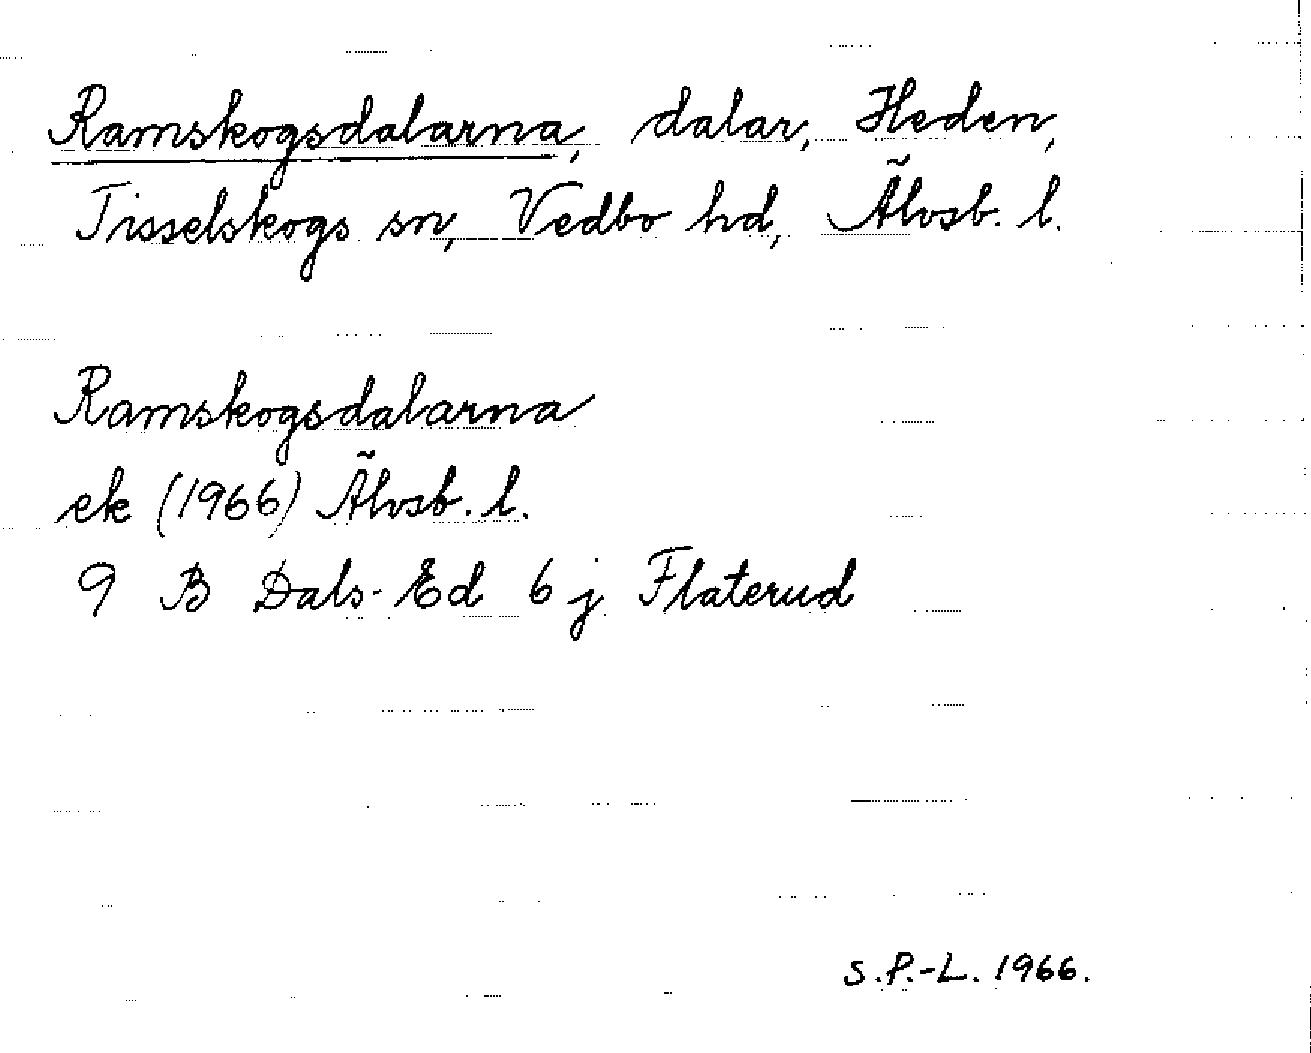 Ramskogsdalarna, dalar, Heden,
Tisselskogs sn, Vedbo hd, Älvsb. l.
Ramskogsdalarna
ek (1966) Älvsb. l.
9 B Dals-Ed 6 j Flaterud
S.P.-L. 1966.